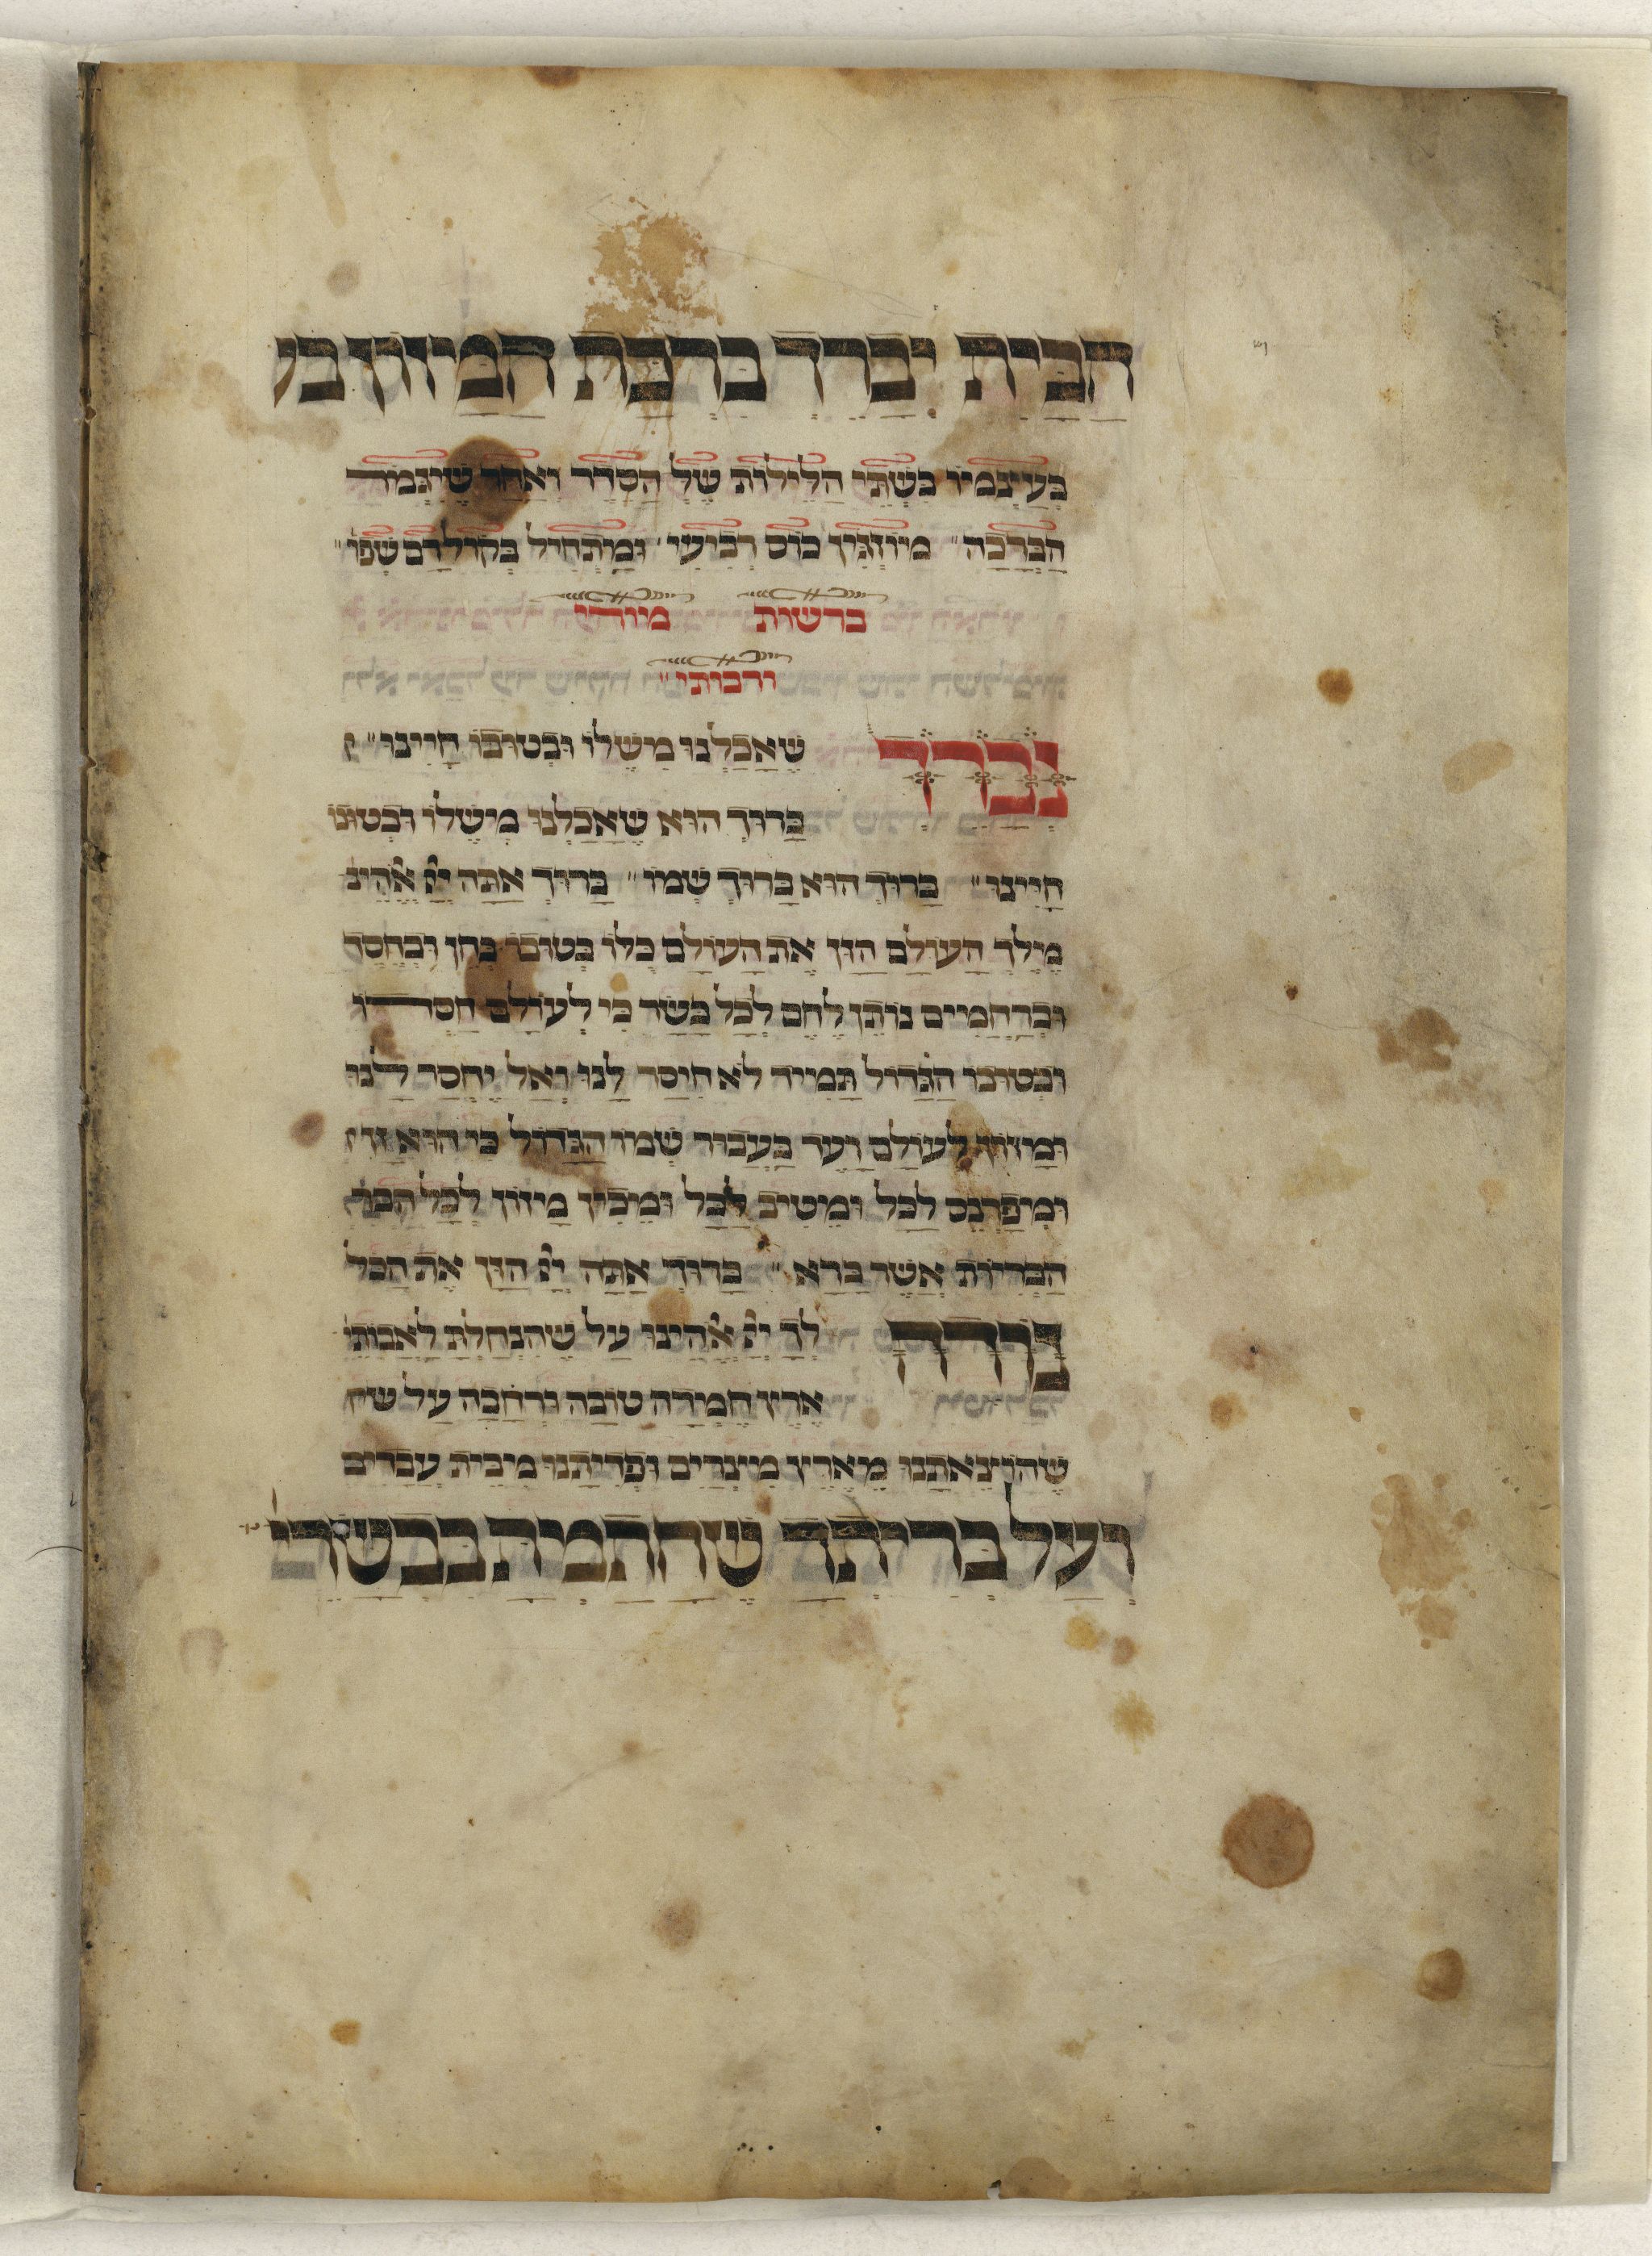 הַבַּיִת יְבָרֵךְ בִּרְכַּת הַמָּזוֹן בּ
בְּעַצְמוֹ בִּשְׁתֵּי הַלֵּילוֹת שֶׁל הַסֵּדֶר וְאַחַר שֶׁיִּגְמֹר
הַבְּרָכָה" מוֹזְגִין כּוֹס רְבִיעִי' וּמַתְחִיל בְּקוֹל רָם שְׁפוֹ"
ברשות מורי
ורבותי"
נְבָרֵךְ שֶׁאָכַלְנוּ מִשֶּׁלּוֹ וּבְטוּבוֹ חָיִינוּ"
בָּרוּךְ הוּא שֶׁאָכַלְנוּ מִשֶּׁלּוֹ וּבְטוּבוֹ
חָיִינוּ" בָּרוּךְ הוּא בָּרוּךְ שְׁמוֹ" בָּרוּךְ אַתָּה יְיָ אֱלֹהֵינ
מֶלֶךְ הָעוֹלָם הַזָּן אֶת הָעוֹלָם כֻּלּוֹ בְּטוּבוֹ בְּחֵן וּבְחֶסֶד
וּבְרַחֲמִים נוֹתֵן לֶחֶם לְכָל בָּשָׂר כִּי לְעוֹלָם חַסְדּוֹ
וּבְטוּבוֹ הַגָּדוֹל תָּמִיד לֹא חִיסַר לָנוּ וְאַל יֶחְסַר לָנוּ
וּמָזוֹן לְעוֹלָם וָעֶד בַּעֲבוּר שְׁמוֹ הַגָּדוֹל כִּי הוּא זָן
וּמְפַרְנֵס לַכֹּל וּמֵטִיב לַכֹּל וּמֵכִין מָזוֹן לְכָל הבר
הַבְּרִיּוֹת אֲשֶׁר בָּרָא" בָּרוּךְ אַתָּה יְיָ הַזָּן אֶת הַכֹּל
נוֹדֶה לְךָ יְיָ אֱלֹהֵינוּ עַל שֶׁהִנְחַלְתָּ לַאֲבוֹתֵי
אֶרֶץ חֶמְדָּה טוֹבָה וּרְחָבָה עַל
שֶׁהוֹצֵאתָנוּ מֵאֶרֶץ מִצְרַיִם וּפְדִיתָנוּ מִבֵּית עֲבָדִים
וְעַל בְּרִיתְךָ שֶׁחָתַמְתָּ בִּבְשָׂרֵי